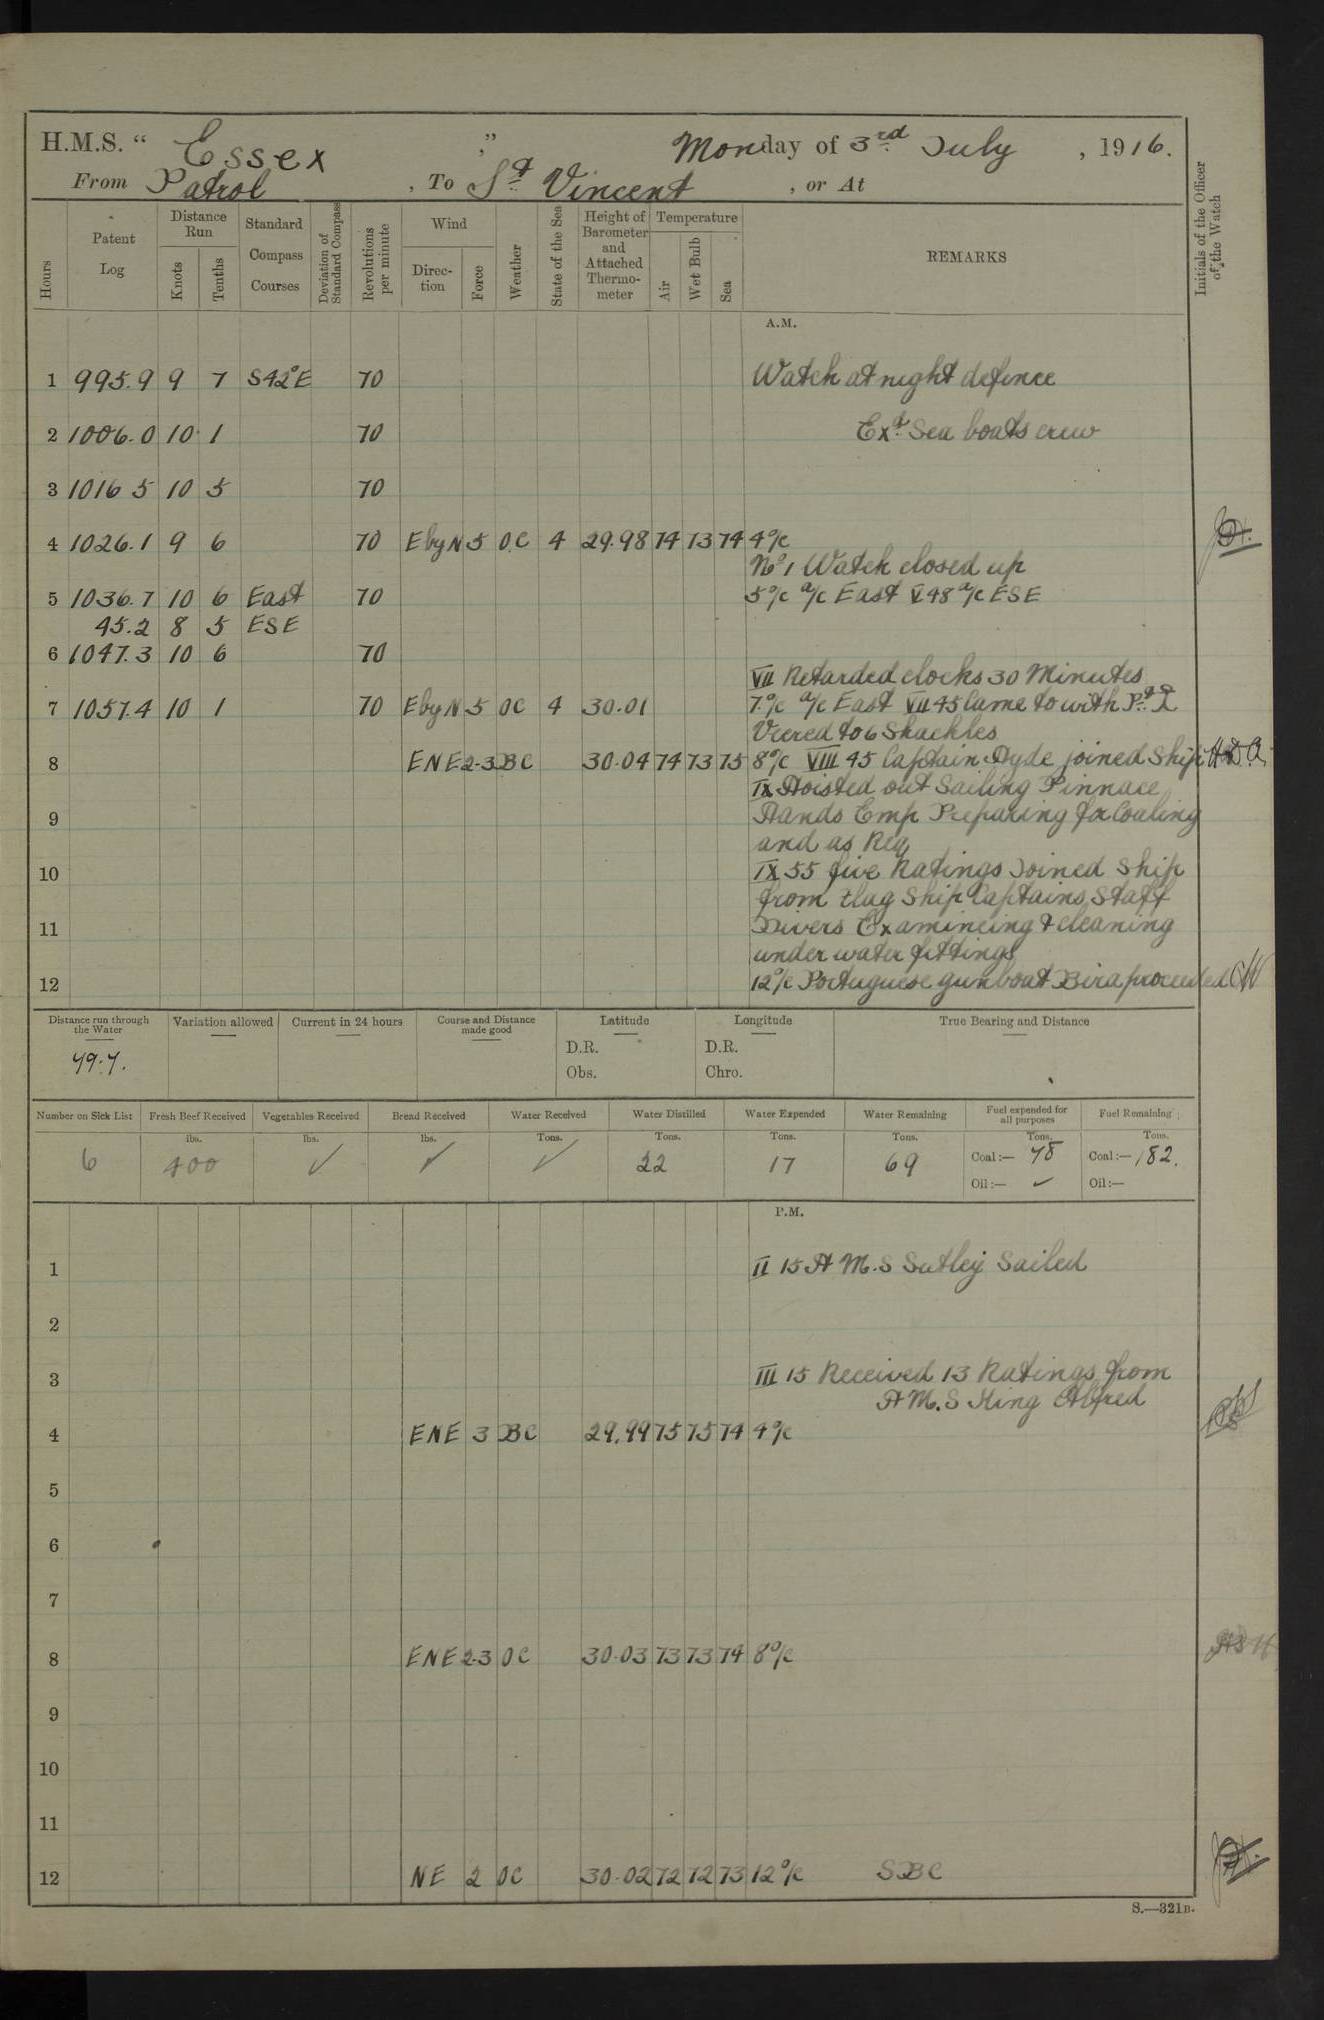 H.M.S. “ Essex ” Monday of 3rd July , 1916.
From Patrol , To St Vincent , or At
Initials of the Officer of the Watch
Hours
Patent Log
Distance Run
Knots
Tenths
Standard Compass Courses
Deviation of Standard Compass
Revolutions per minute
Wind
Direc- tion
Force
Weather
State of the Sea
Height of Barometer and Attached Thermo- meter
Temperature
Air
Wet Bulb
Sea
REMARKS
A.M.
1 995.9 9 7 S42°E 70 Watch at night defence
2 1006.0 10 1 70 Exd Sea boats crew
3 1016 5 10 5 70
4 1026.1 9 6 70 E by N 5 OC 4 29.98 74 73 74 4 o/c
No 1 Watch closed up
5 1036.7 10 6 East 70 5 o/c a/c East V 48 a/c ESE
45.2 8 5 ESE
6 1047.3 10 6 70
VII Retarded clocks 30 Minutes
7 1057.4 10 1 70 E by N 5 OC 4 30.01 7 o/c a/c East VII 45 Came to with
Veered to 6 Shackles
8 ENE 2-3 BC 30.04 74 73 75 8 o/c VIII 45 Captain Hyde joined Ship
IX Hoisted out Sailing Pinnace
9 Hands Emp Preparing for Coaling
and as Req
10 IX 55 five Ratings Joined Ship
from Flag Ship Captains Staff
11 Divers Examineing & cleaning
under water fittings
12 12 o/c Portuguese gunboat proceeded
Distance run through the Water
Variation allowed
Current in 24 hours
Course and Distance made good
Latitude
Longitude
True Bearing and Distance
79.7.
D.R.
Obs.
D.R.
Chro.
Number on Sick List
Fresh Beef Received
Vegetables Received
Bread Received
Water Received
Water Distilled
Water Expended
Water Remaining
Fuel expended for all purposes
Fuel Remaining
lbs. lbs. lbs. Tons. Tons. Tons. Tons. Tons. Tons.
6 400 ✓ ✓ ✓ 22 17 69 Coal :— 78 Coal :— 182.
Oil :— ✓ Oil :—
P.M.
1 II 15 H M.S Sutlej Sailed
2
3 III 15 Received 13 Ratings from
H M.S King Alfred
4 ENE 3 BC 29.99 75 75 74 4 o/c
5
6
7
8 ENE 2-3 OC 30.03 73 73 74 8 o/c
9
10
11
12 NE 2 OC 30.02 72 72 73 12 o/c SBC
S.—321B.